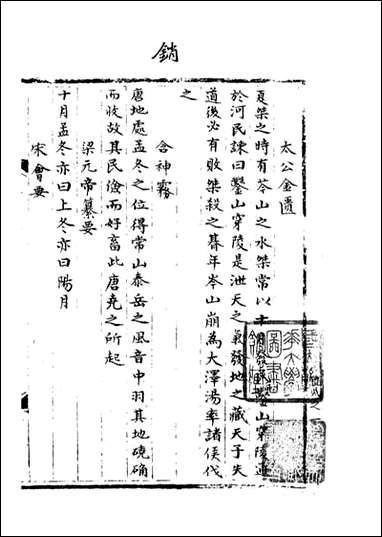 銷
太公金匱
夏桀之時有岑山之水桀常以十月發民鑿山穿陵通
於河民諫曰鑿山穿陵是泄天之氣發地之藏天子失
道後必有敗桀殺之暮年岑山崩為大澤湯率諸侯伐
之
含神霧
唐地處孟冬之位得常山泰岳之風音中羽其地磽确
而收故其民儉而好畜此唐堯之所起
梁元帝纂要
十月孟冬亦曰上冬亦曰陽月
宋會要